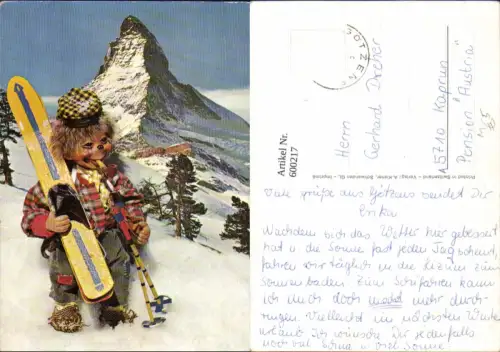 GÖTZENS
Artikel Nr.
600217
Herrn
Gerhard Dreher
A 5710 Kaprun
Pension "Austria"
Viele Grüße aus Götzens sendet Dir
Erika
Nachdem sich das Wetter hier gebessert
hat u die Sonne fast jeden Tag scheint,
fahren wir täglich in die Lizum zum
Sonnenbaden. Zum Skifahren kann
ich mich doch nicht mehr durch-
ringen. Vielleicht im nächsten Winter
urlaub. Ich wünsche Dir jedenfalls
noch viel u viel Sonne